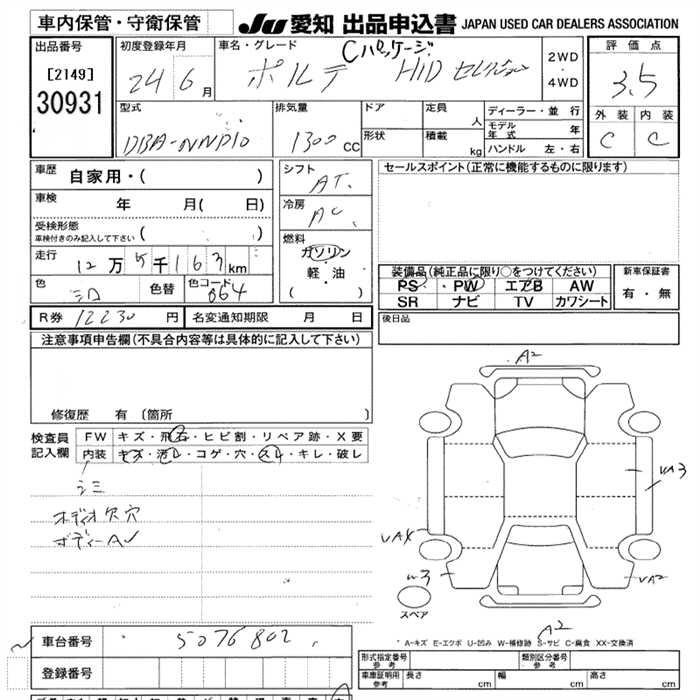 車内保管・守衛保管
JU 愛知 出品申込書 JAPAN USED CAR DEALERS ASSOCIATION
出品番号
[2149]
30931
初度登録年月
24 6月
車名・グレード
ポルテ Cパッケージ HID セレクション
2WD
・
4WD
評価点
3.5
外装 内装
C C
型式
DBA-NNP10
排気量
1300 cc
ドア
形状
定員
人
積載
kg
ディーラー・並行
モデル年式 年
ハンドル 左・右
車歴
自家用・( )
車検
年 月( 日)
受検形態
車検付きのみ記入して下さい ( )
走行
12万5千163km
色
シロ
色替
色コード
064
シフト
AT
冷房
AC
燃料
ガソリン
軽・油
( )
セールスポイント(正常に機能するものに限ります)
装備品(純正品に限り○をつけてください)
PS PW エアB AW
SR ナビ TV カワシート
新車保証書
有・無
R券 12230 円
名変通知期限 月 日
後日品
注意事項申告欄(不具合内容等は具体的に記入して下さい)
修復歴 有 [箇所 ]
検査員
記入欄
FW キズ・飛石・ヒビ割・リペア跡・X要
内装 キズ・汚レ・コゲ・穴・スレ・キレ・破レ
シミ
オーディオ欠穴
ボディーAU
A2
UA3
UA4
W3
UA2
スペア
A2
* A-キズ E-エクボ U-凹み W-補修跡 S-サビ C-腐食 XX-交換済
車台番号 5076802
登録番号
形式指定番号
参考
類別区分番号
参考
車庫証明用
参考
長さ cm
幅 cm
高さ cm